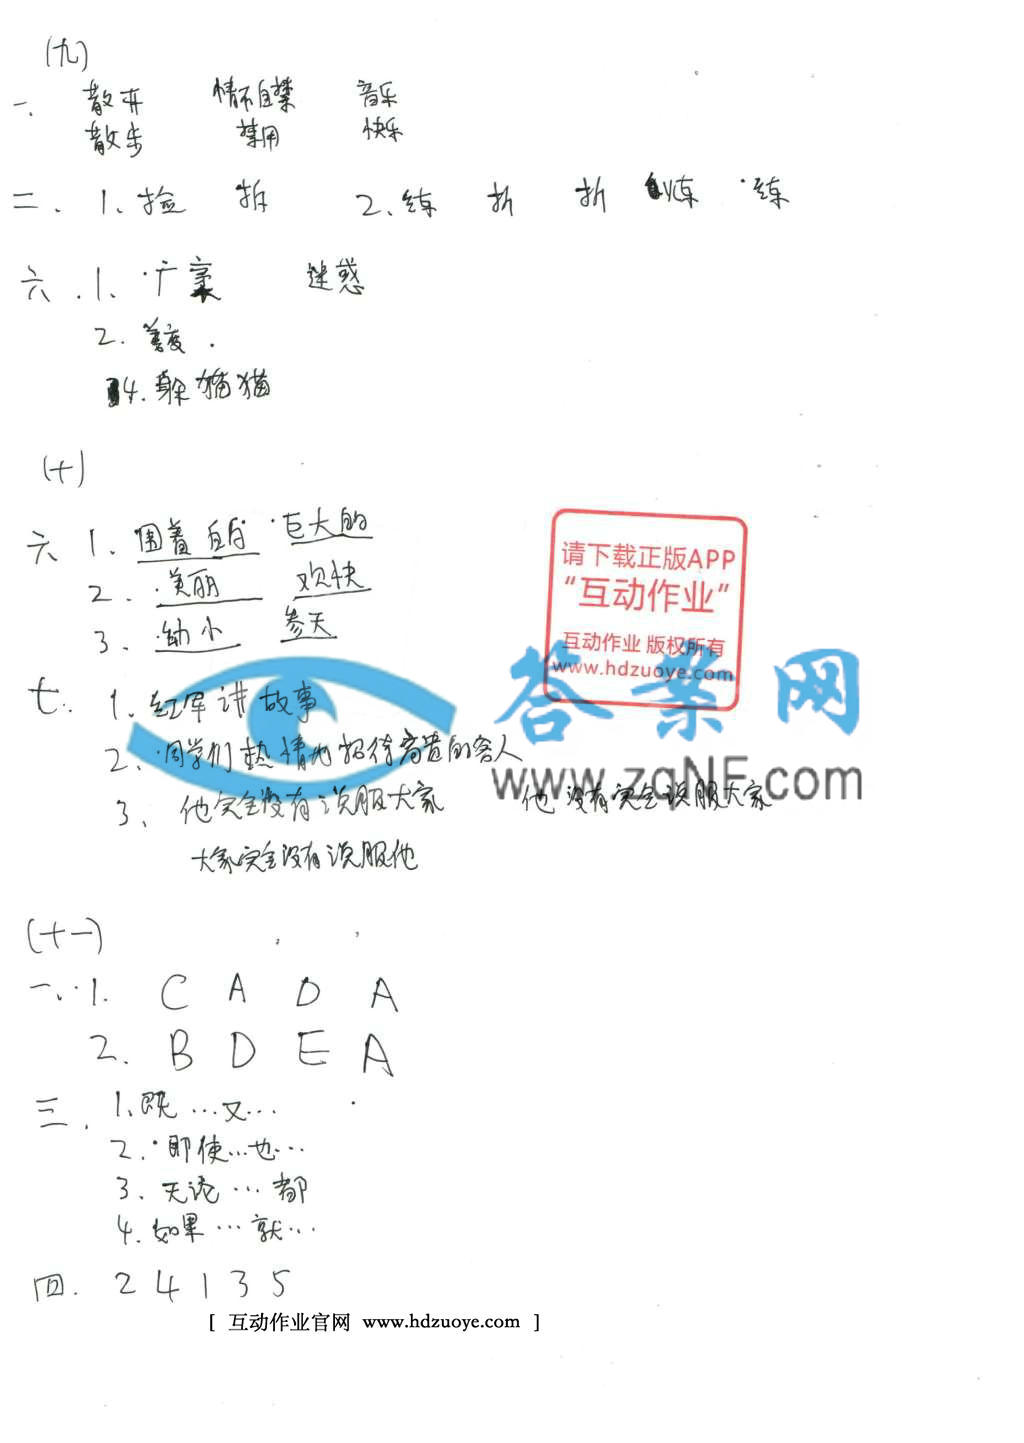 (九)
一、 散开 情不自禁 音乐
散步 禁用 快乐
二、 1、捡 拆 2、练 折 折 炼 练
六、1、广袤 迷惑
2.
4.躲猫猫
(十)
六 1、围着 自身 巨大的
2. 美丽 欢快
3、幼小 参天
七、 1、红军讲故事
2、同学们热情地招待旁边的客人
3、他完全没有说服大家 他没有完全说服大家
大家完全没有说服他
(十一)
一、1. C A D A
2. B D E A
三、 1、既…又…
2.即使…也…
3、无论…都
4.如果…就…
四. 2 4 1 3 5
请下载正版APP
“互动作业”
互动作业 版权所有
www.hdzuoye.com
答案网
www.zqNF.com
[ 互动作业官网 www.hdzuoye.com ]